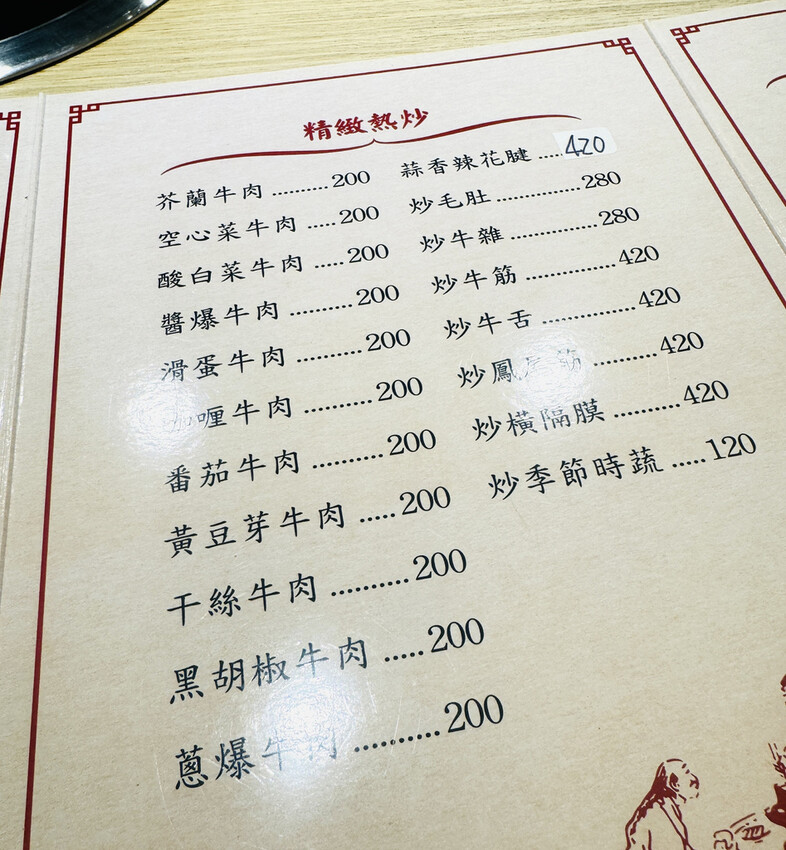 精緻熱炒
芥蘭牛肉 ..........200
空心菜牛肉 .....200
酸白菜牛肉 .....200
醬爆牛肉 ..........200
滑蛋牛肉 ..........200
咖喱牛肉 ..........200
番茄牛肉 ..........200
黃豆芽牛肉 .....200
干絲牛肉 ..........200
黑胡椒牛肉 .....200
蔥爆牛肉 ..........200
蒜香辣花腱 .....420
炒毛肚 ...............280
炒牛雜 ...............280
炒牛筋 ...............420
炒牛舌 ...............420
炒鳳尾筋 ..........420
炒橫隔膜 ..........420
炒季節時蔬 .....120